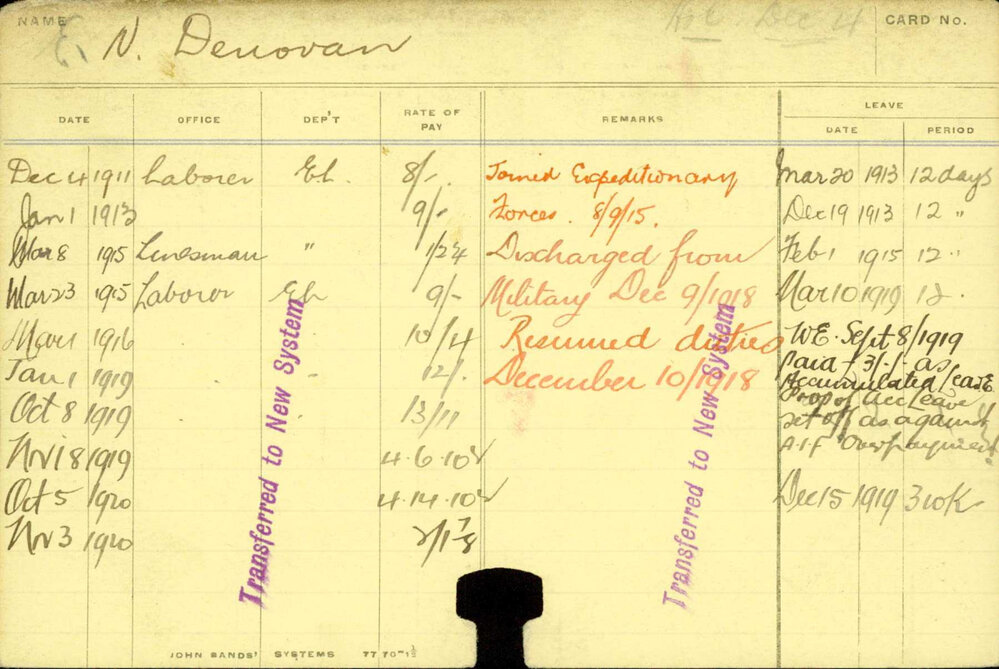 NAME
E. N. Denovan
CARD No.
DATE OFFICE DEP'T RATE OF PAY REMARKS LEAVE
DATE PERIOD
Dec 4 1911 Laborer El. 8/-. Joined Expeditionary Mar 20 1913 12 days
Jan 1 1913 9/- Forces. 8/9/15. Dec 19 1913 12 "
Mar 8 1915 Linesman " Discharged from Feb 1 1915 12 "
Mar 23 1915 Laborer El 9/- Military Dec 9/1918 Mar 10 1919 12.
1916 10/4 Resumed duties W.E. Sept 8/1919
Jan 1 1919 12/. December 10/1918 paid 3/-/- as
Oct 8 1919 13/11 Accumulated Leave
Prop of Acc Leave
set off as against
A.I.F Overpayment
Nov 18 1919 4.6.10
Oct 5 1920 4.14.10 Dec 15 1919 3 wk
Nov 3 1920
Transferred to New System
Transferred to New System
JOHN SANDS' SYSTEMS